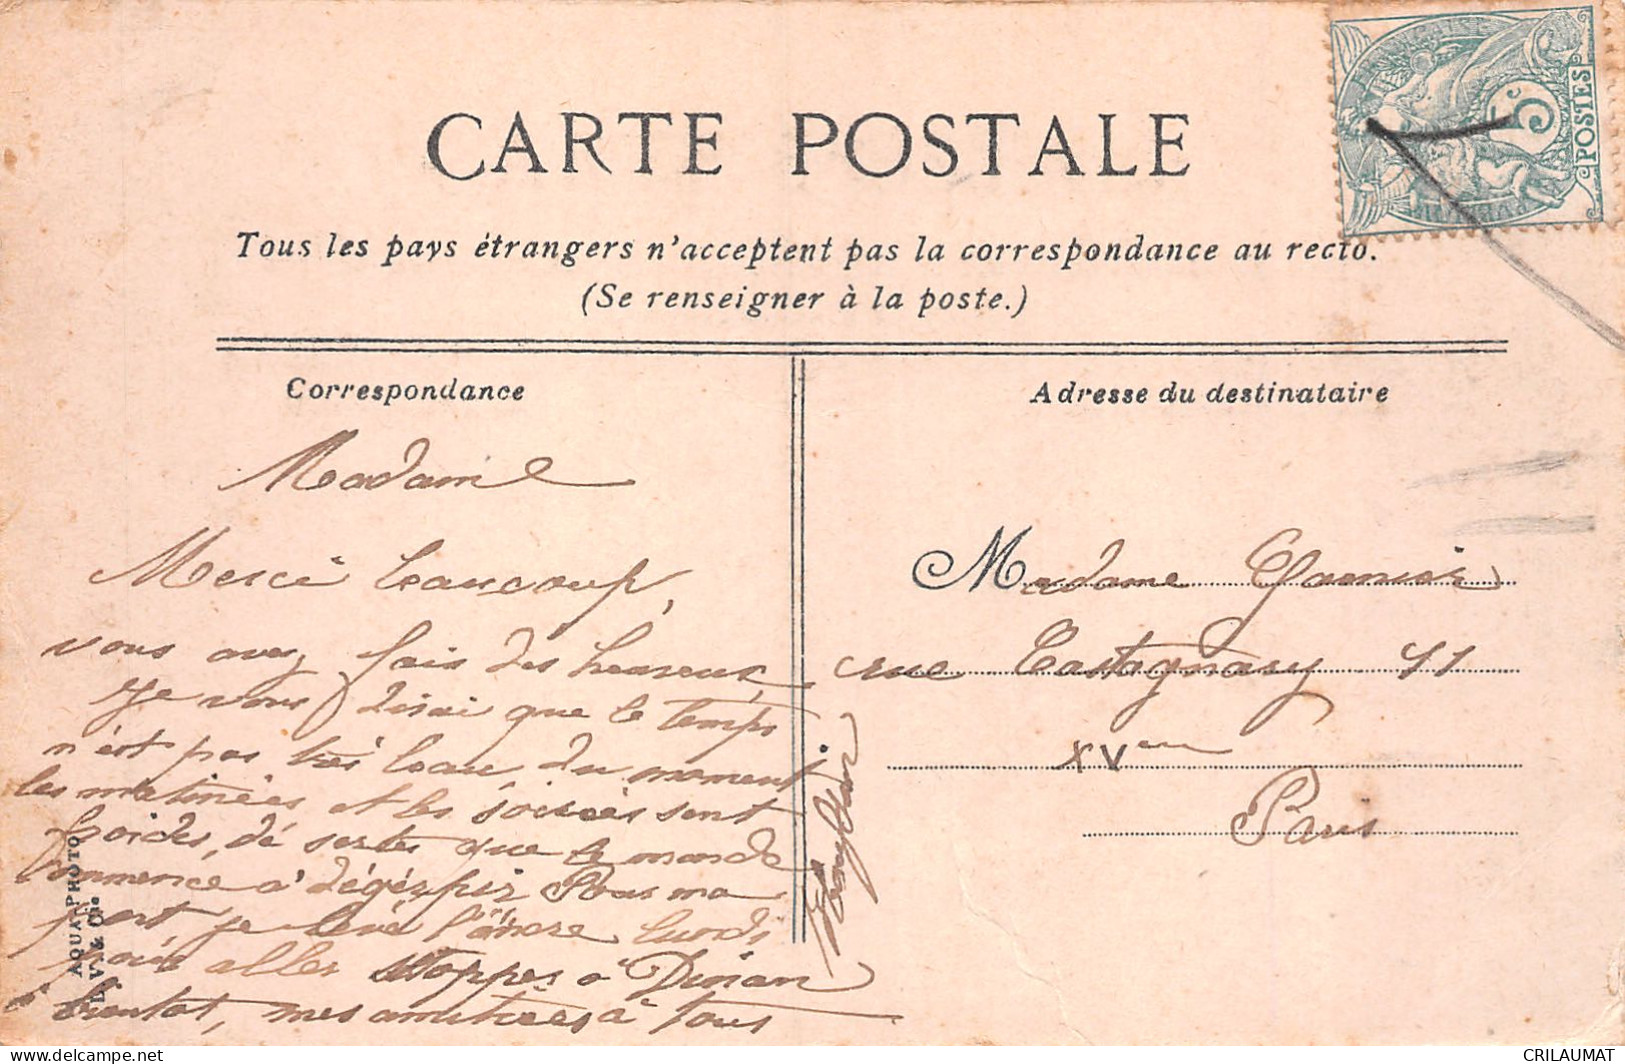 CARTE POSTALE
5c
POSTES
Tous les pays étrangers n'acceptent pas la correspondance au recto.
(Se renseigner à la poste.)
Correspondance
Madame
Merci beaucoup,
vous avez fais des heureux,
Je vous disai que le temps
n'est pas très beau, du moment
les matinées et les soirées sont
froides, dé sortes que le monde
commence a dégérpir Pour ma
part je levé l'ancre lundi
pour aller stopper a Dinan
à bientot, mes amitiées à tous
AQUA PHOTO
L. V. & Cie
Adresse du destinataire
Madame Garnier
rue Castagnary 41
XVeme
Paris
CRILAUMAT